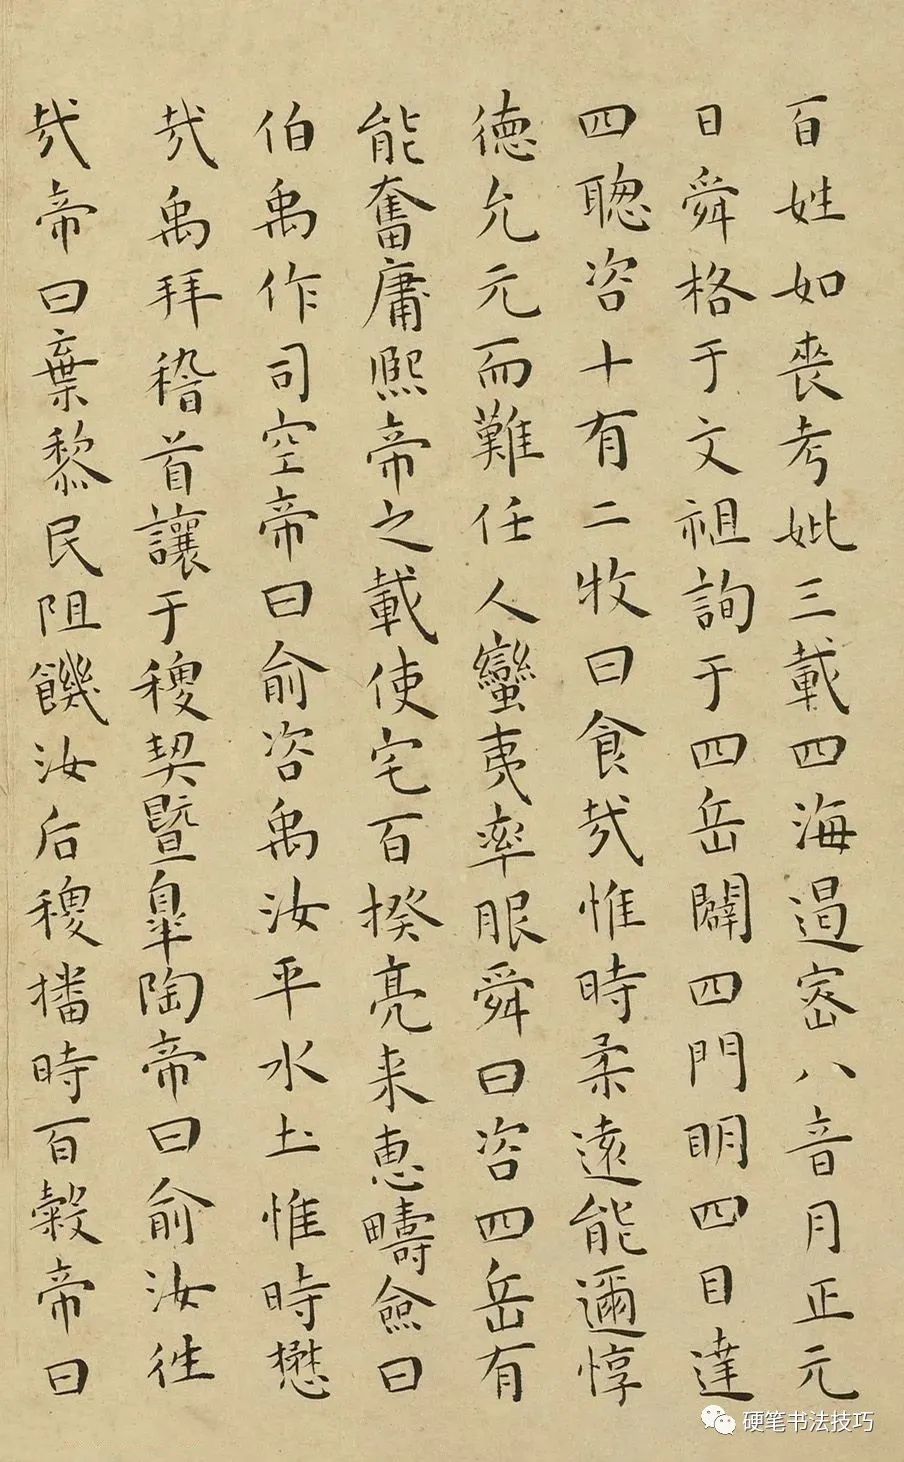 百姓如喪考妣三載四海遏密八音月正元
日舜格于文祖詢于四岳闢四門明四目達
四聰咨十有二牧曰食哉惟時柔遠能邇惇
德允元而難任人蠻夷率服舜曰咨四岳有
能奮庸熙帝之載使宅百揆亮来惠疇僉曰
伯禹作司空帝曰俞咨禹汝平水土惟時懋
哉禹拜稽首讓于稷契暨臯陶帝曰俞汝徃
哉帝曰棄黎民阻饑汝后稷播時百穀帝曰
硬笔书法技巧